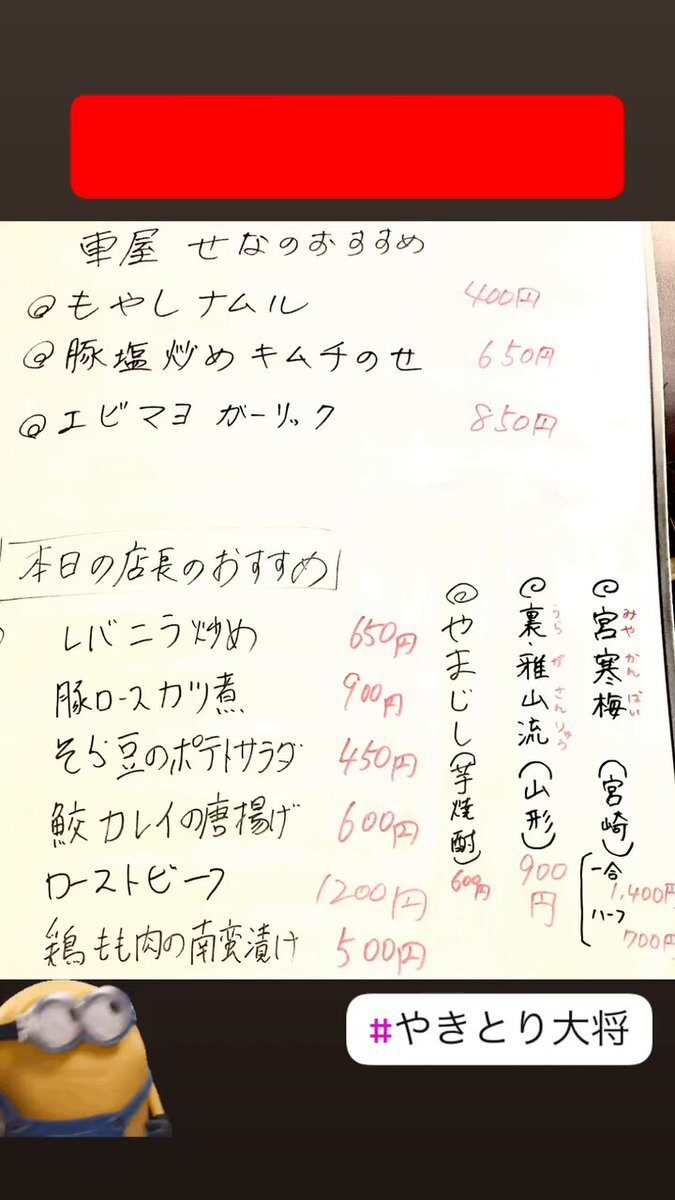 車屋 せなのおすすめ
@もやしナムル 400円
@豚塩炒めキムチのせ 650円
@エビマヨ ガーリック 850円
本日の店長のおすすめ
レバニラ炒め 650円
豚ロースカツ煮 900円
そら豆のポテトサラダ 450円
鮫カレイの唐揚げ 600円
ローストビーフ 1200円
鶏もも肉の南蛮漬け 500円
@宮寒梅(宮崎)
みやかんばい
一合 1,400円
ハーフ 700円
@裏・雅山流(山形) 900円
うら がさんりゅう
@やまじし(芋焼酎) 600円
#やきとり大将